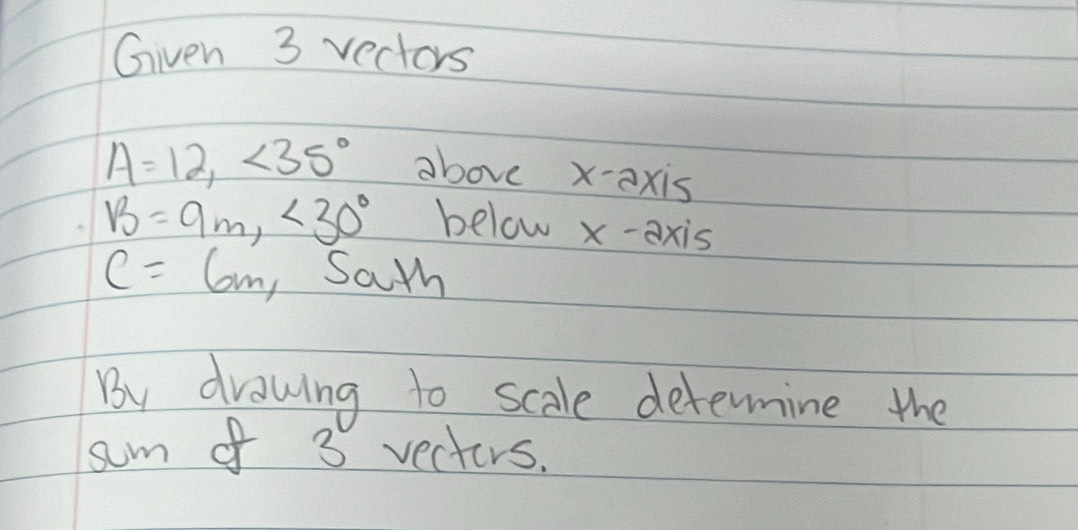 Given 3 vectors
A=12, <35° above x-axis
B=9m, <30° below x-axis
C= 6m, South
By drawing to scale determine the
sum of 3 vectors.